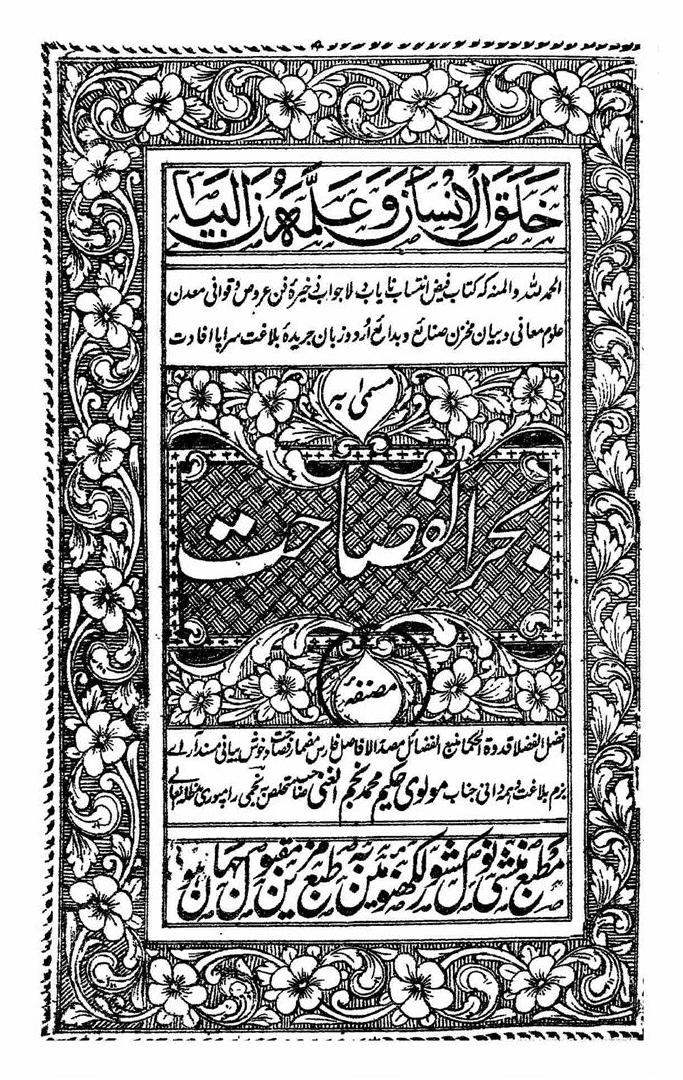 خَلَقَ الْإِنْسَانَ وَعَلَّمَهُ الْبَيَانَ
الحمد للہ والمنہ کہ کتاب فیض انتساب نایاب و لاجواب ذخیرۂ فن عروض و قوافی معدن
علوم معانی و بیان مخزن صنائع و بدائع اُردو زبان جریدۂ بلاغت سراپا افادت
مسمیٰ بہ
بحر الفصاحت
مصنفہ
افضل الفضلا قدوۃ الحکما منبع الفضائل مصدر الافاضل فارس مضمار فصاحت و خوش بیانی مسند آرائے
بزم بلاغت و ہمہ دانی جناب مولوی حکیم محمد نجم الغنی صاحب متخلص نجمی رامپوری مدظلہ تعالیٰ
مطبع منشی نولکشور لکھنؤ میں بہ طبع مزین مقبول جہان ہوا